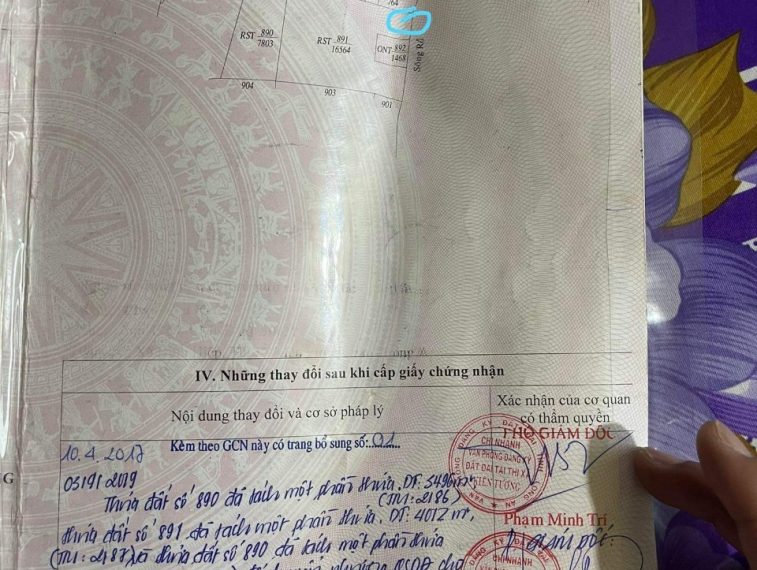 764
RST 890/7803
RST 891/16564
ONT 892/1468
Sông Rồ
904
903
901
IV. Những thay đổi sau khi cấp giấy chứng nhận
Nội dung thay đổi và cơ sở pháp lý
Xác nhận của cơ quan
có thẩm quyền
10.4.2017
Kèm theo GCN này có trang bổ sung số: 01
PHÓ GIÁM ĐỐC
CHI NHÁNH
VĂN PHÒNG ĐĂNG KÝ
ĐẤT ĐAI TẠI THỊ XÃ
KIẾN TƯỜNG
G
03/9/2019
Thửa đất số 890 đã tách một phần thửa. DT: 5496 m²,
(TM: 2186)
thửa đất số 891 đã tách một phần thửa. DT: 4072 m²,
Phạm Minh Trí
(TM: 2187) và thửa đất số 890 đã tách một phần thửa
GIÁM ĐỐC
CHI NHÁNH